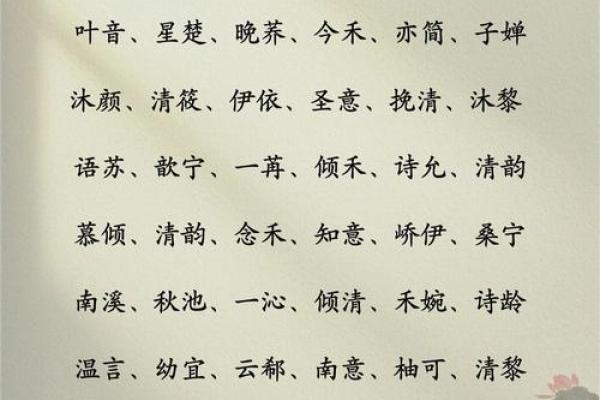 叶音、星楚、晚荞、今禾、亦简、子婵
沐颜、清筱、伊依、圣意、挽清、沐黎
语苏、歆宁、一苒、倾禾、诗允、清韵
慕倾、清韵、念禾、知意、峤伊、桑宁
南溪、秋池、一沁、倾清、禾婉、诗龄
温言、幼宜、云郗、南意、柚可、清黎